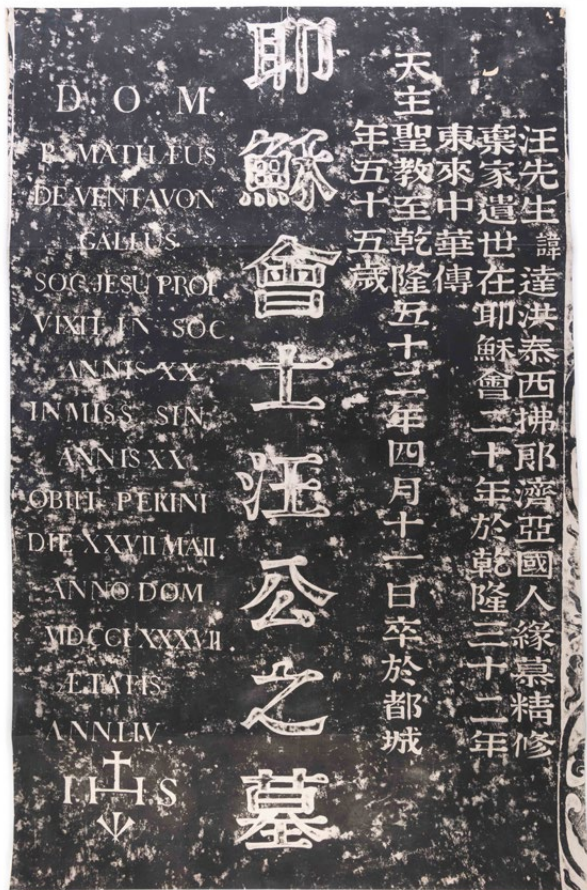 汪先生諱達洪泰西拂郎濟亞國人緣慕精修
棄家遺世在耶穌會二十年於乾隆三十二年
東來中華傳
天主聖教至乾隆五十二年四月十一日卒於都城
年五十五歲
耶穌會士汪公之墓
D. O. M.
P. MATHÆUS
DE VENTAVON
GALLUS
SOC. JESU PROF
VIXIT IN SOC.
ANNIS XX.
IN MISS SIN.
ANNIS XX
OBIIT PEKINI
DIE XXVII MAII.
ANNO DOM.
MDCCLXXXVII.
ÆTATIS
ANN. LIV.
I.H.S